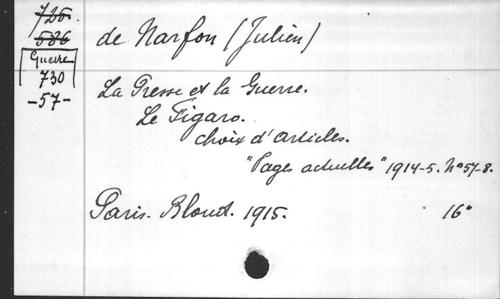 726.
586
Guerre
730
-57-
de Narfon (Julien)
La Presse et la Guerre.
Le Figaro.
choix d'articles.
"Pages actuelles" 1914-5. Nos 57-8.
Paris. Bloud. 1915. 16°